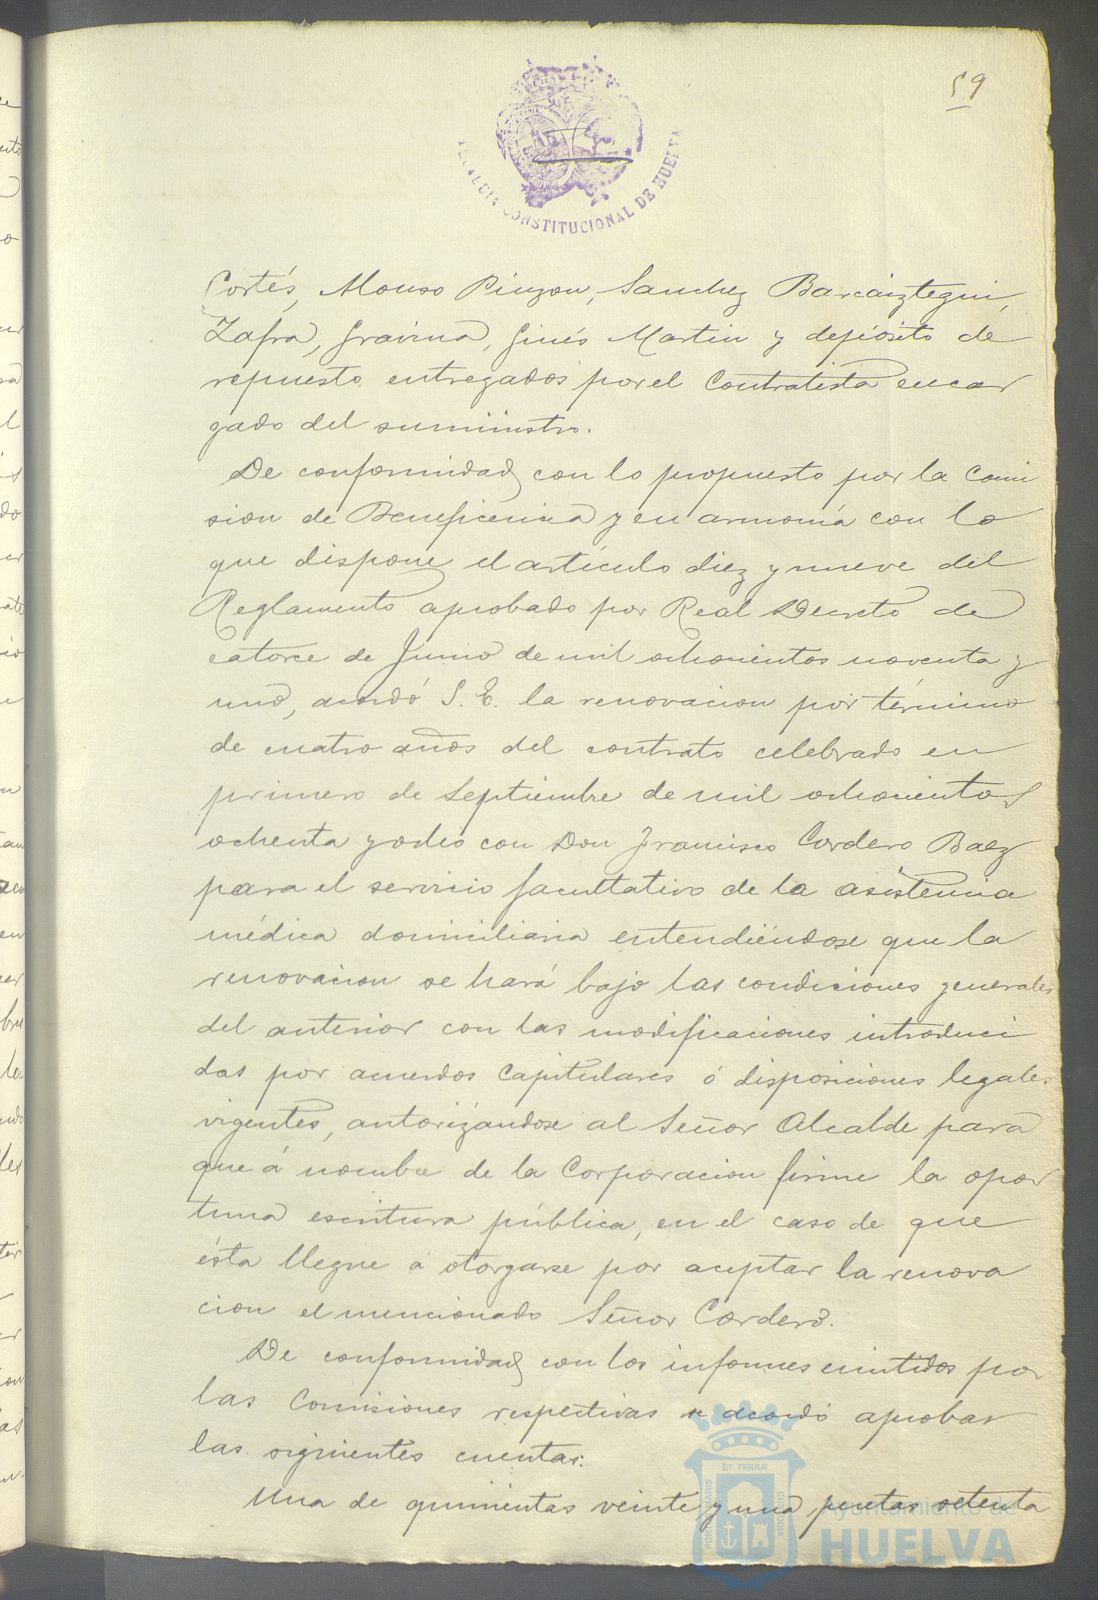 59
ALCALDIA CONSTITUCIONAL DE HUELVA
Cortés, Alonso Pinzon, Sanchez Barcaiztegui,
Zafra, Gravina, Ginés Martin y depósito de
repuesto entregados por el Contratista encar
gado del suministro.
De conformidad con lo propuesto por la Comi
sion de Beneficencia y en armonía con lo
que dispone el artículo diez y nueve del
Reglamento aprobado por Real Decreto de
catorce de Junio de mil ochocientos noventa y
uno, acordó S. E. la renovacion por término
de cuatro años del contrato celebrado en
primero de Septiembre de mil ochocientos
ochenta y ocho con Don Francisco Cordero Baez
para el servicio facultativo de la asistencia
médica domiciliaria entendiéndose que la
renovacion se hará bajo las condiciones generales
del anterior con las modificaciones introduci
das por acuerdos capitulares ó disposiciones legales
vigentes, autorizándose al Señor Alcalde para
que á nombre de la Corporacion firme la opor
tuna escritura pública, en el caso de que
ésta llegue á otorgarse por aceptar la renova
cion el mencionado Señor Cordero.
De conformidad con los informes emitidos por
las Comisiones respectivas se acordó aprobar
las siguientes cuentas:
Una de quinientas veinte y una pesetas setenta
ET TERRÆ
Ayuntamiento de
HUELVA